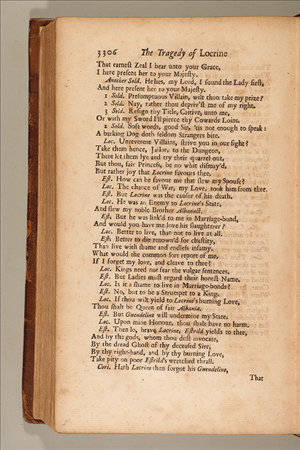 3306 The Tragedy of Locrine
That earnest Zeal I bear unto your Grace,
I here present her to your Majesty.
Another Sold. He lies, my Lord, I found the Lady first,
And here present her to your Majesty.
1 Sold. Presumptuous Villain, wilt thou take my prize?
2 Sold. Nay, rather thou depriv'st me of my right.
1 Sold. Resign thy Title, Caitive, unto me,
Or with my Sword I'll pierce thy Cowards Loins.
2 Sold. Soft words, good Sir, 'tis not enough to speak:
A barking Dog doth seldom Strangers bite.
Loc. Unreverent Villains, strive you in our sight?
Take them hence, Jailor, to the Dungeon,
There let them lye and try their quarrel out,
But thou, fair Princess, be no whit dismay'd,
But rather joy that Locrine favours thee.
Est. How can he favour me that slew my Spouse?
Loc. The chance of War, my Love, took him from thee.
Est. But Locrine was the causer of his death.
Loc. He was an Enemy to Locrine's State,
And slew my noble Brother Albanact.
Est. But he was link'd to me in Marriage-bond,
And would you have me love his slaughterer?
Loc. Better to live, than not to live at all.
Est. Better to die renown'd for chastity,
Than live with shame and endless infamy.
What would the common sort report of me,
If I forget my love, and cleave to thee?
Loc. Kings need not fear the vulgar sentences.
Est. But Ladies must regard their honest Name.
Loc. Is it a shame to live in Marriage-bonds?
Est. No, but to be a Strumpet to a King.
Loc. If thou wilt yield to Locrine's burning Love,
Thou shalt be Queen of fair Albania.
Est. But Guendeline will undermine my State.
Loc. Upon mine Honour, thou shalt have no harm.
Est. Then lo, brave Locrine, Estrild yields to thee,
And by the gods, whom thou dost invocate,
By the dread Ghost of thy deceased Sire,
By thy right-hand, and by thy burning Love,
Take pity on poor Estrild's wretched thrall.
Cori. Hath Locrine then forgot his Guendeline,
That